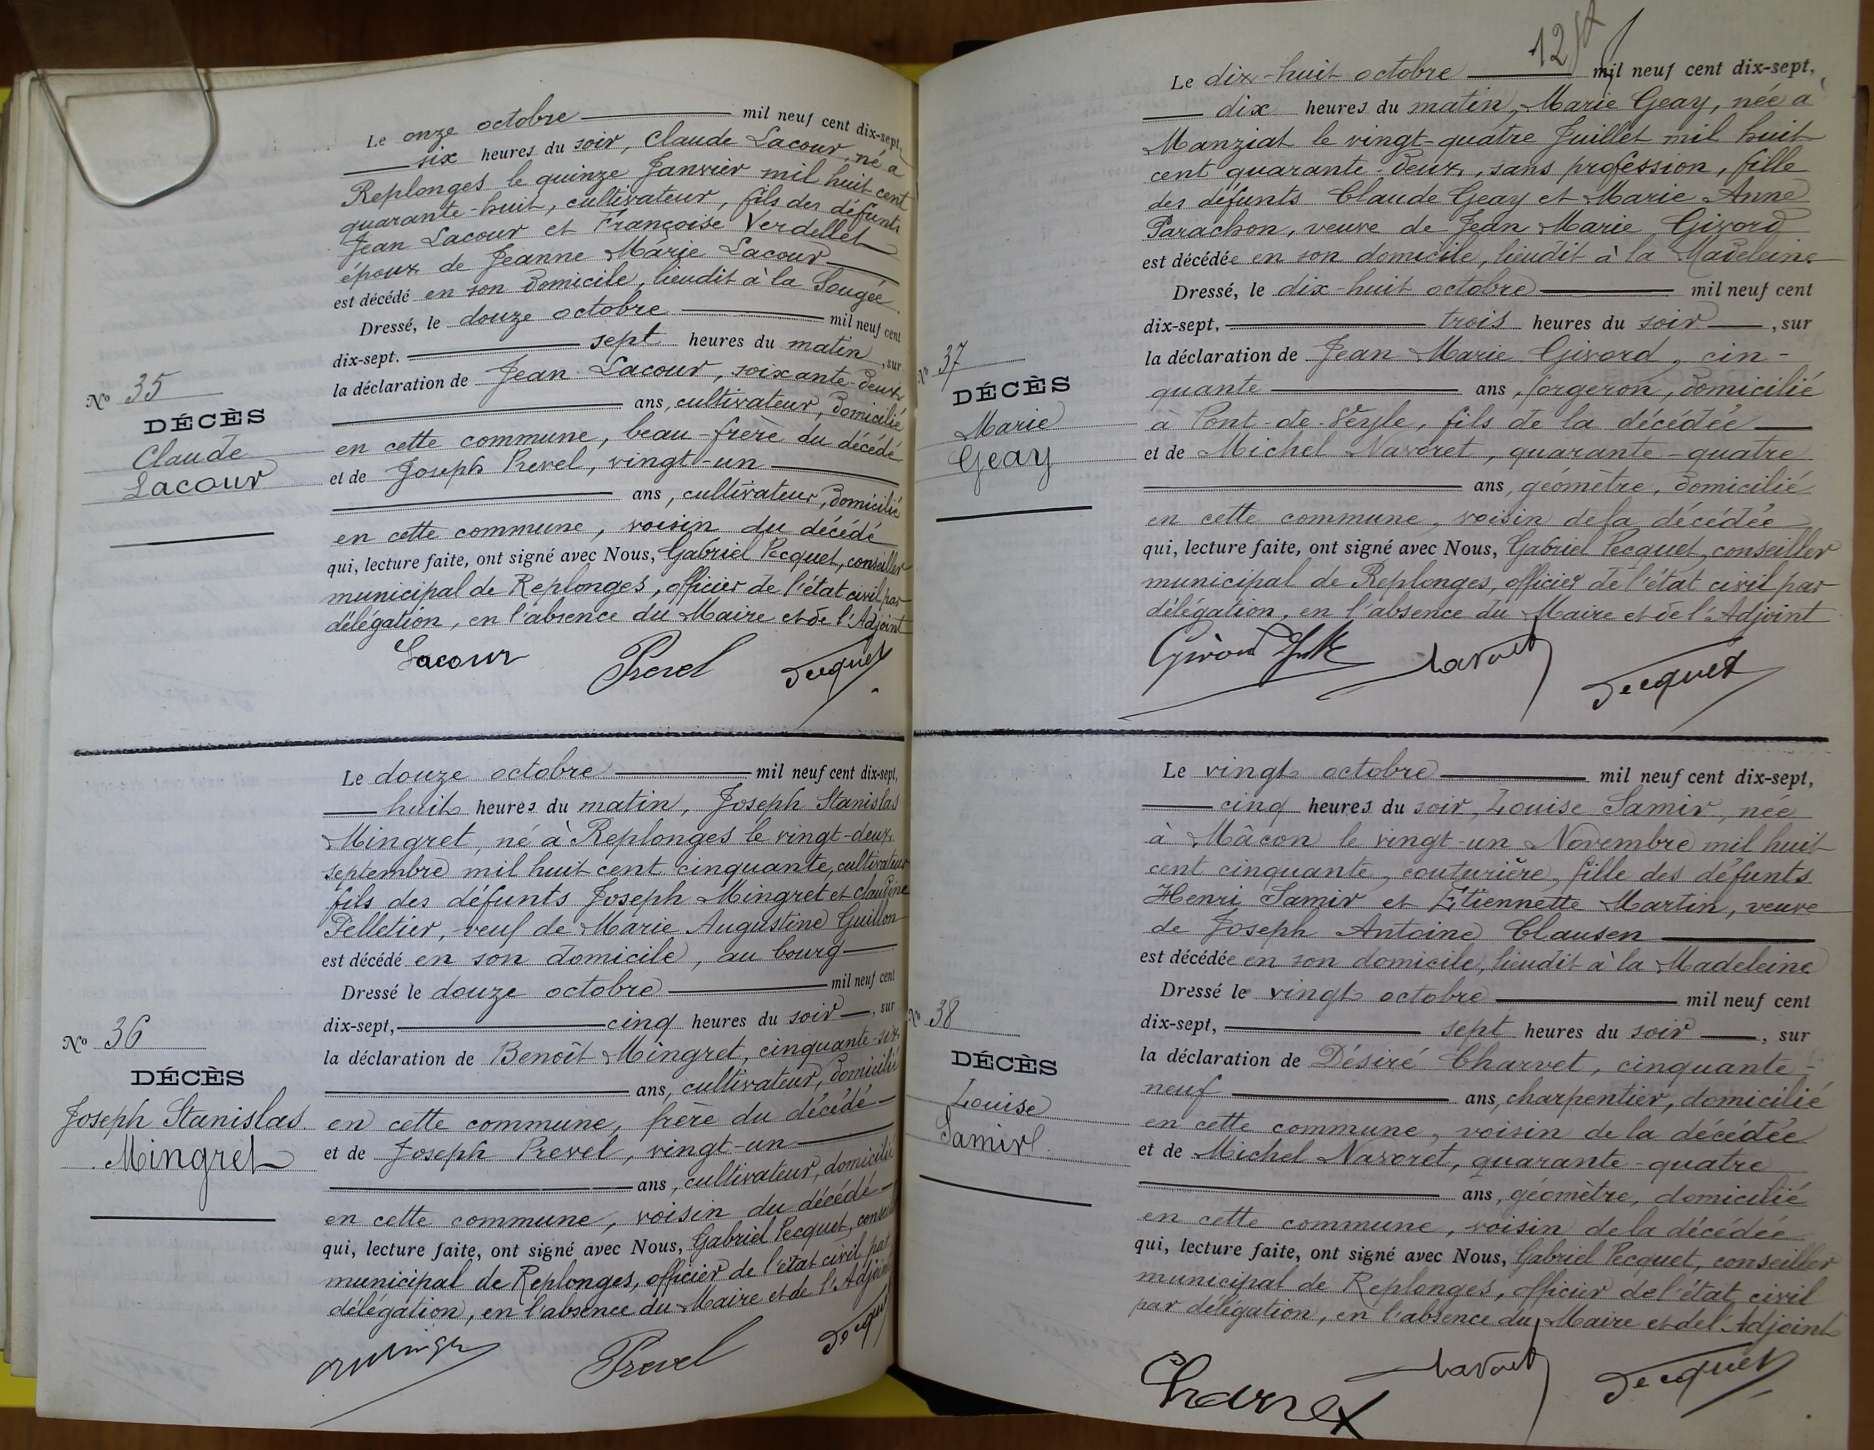 Le onze octobre mil neuf cent dix-sept,
six heures du soir, Claude Lacour, né à
Replonges le quinze Janvier mil huit cent
quarante-huit, cultivateur, fils des défunts
Jean Lacour et Françoise Verdellet
époux de Jeanne Marie Lacour
est décédé en son domicile, lieudit à la Sougée
Dressé, le douze octobre mil neuf cent
dix-sept. sept heures du matin, sur
la déclaration de Jean Lacour, soixante-deux
ans, cultivateur, domicilié
en cette commune, beau-frère du décédé
et de Joseph Prevel, vingt-un
ans, cultivateur, domicilié
en cette commune, voisin du décédé
qui, lecture faite, ont signé avec Nous, Gabriel Pecquet, conseiller
municipal de Replonges, officier de l'état civil par
délégation, en l'absence du Maire et de l'Adjoint
Lacour Prevel Pecquet
No 35
DÉCÈS
Claude
Lacour
Le douze octobre mil neuf cent dix-sept,
huit heures du matin, Joseph Stanislas
Mingret, né à Replonges le vingt-deux
septembre mil huit cent cinquante, cultivateur
fils des défunts Joseph Mingret et Claudine
Pelletier, veuf de Marie Augustine Guillon
est décédé en son domicile, au bourg
Dressé le douze octobre mil neuf cent
dix-sept, cinq heures du soir, sur
la déclaration de Benoît Mingret, cinquante-six
ans, cultivateur, domicilié
en cette commune, frère du décédé
et de Joseph Prevel, vingt-un
ans, cultivateur, domicilié
en cette commune, voisin du décédé
qui, lecture faite, ont signé avec Nous, Gabriel Pecquet, conseiller
municipal de Replonges, officier de l'état civil par
délégation, en l'absence du Maire et de l'Adjoint
Prevel Pecquet
No 36
DÉCÈS
Joseph Stanislas
Mingret
12
Le dix-huit octobre mil neuf cent dix-sept,
dix heures du matin, Marie Geay, née à
Manziat le vingt-quatre Juillet mil huit
cent quarante-deux, sans profession, fille
des défunts Claude Geay et Marie Anne
Parachon, veuve de Jean Marie Givord
est décédée en son domicile, lieudit à la Madeleine
Dressé, le dix-huit octobre mil neuf cent
dix-sept, trois heures du soir, sur
la déclaration de Jean Marie Givord, cin-
quante ans, forgeron, domicilié
à Pont-de-Veyle, fils de la décédée
et de Michel Navoret, quarante-quatre
ans, géomètre, domicilié
en cette commune, voisin de la décédée
qui, lecture faite, ont signé avec Nous, Gabriel Pecquet, conseiller
municipal de Replonges, officier de l'état civil par
délégation, en l'absence du Maire et de l'Adjoint
Givord Navoret Pecquet
No 37
DÉCÈS
Marie
Geay
Le vingt octobre mil neuf cent dix-sept,
cinq heures du soir, Louise Samir, née
à Mâcon le vingt-un Novembre mil huit
cent cinquante, couturière, fille des défunts
Henri Samir et Etiennette Martin, veuve
de Joseph Antoine Clausen
est décédée en son domicile, lieudit à la Madeleine
Dressé le vingt octobre mil neuf cent
dix-sept, sept heures du soir, sur
la déclaration de Désiré Charvet, cinquante-
neuf ans, charpentier, domicilié
en cette commune, voisin de la décédée
et de Michel Navoret, quarante-quatre
ans, géomètre, domicilié
en cette commune, voisin de la décédée
qui, lecture faite, ont signé avec Nous, Gabriel Pecquet, conseiller
municipal de Replonges, officier de l'état civil
par délégation, en l'absence du Maire et de l'Adjoint
Charvet Navoret Pecquet
No 38
DÉCÈS
Louise
Samir